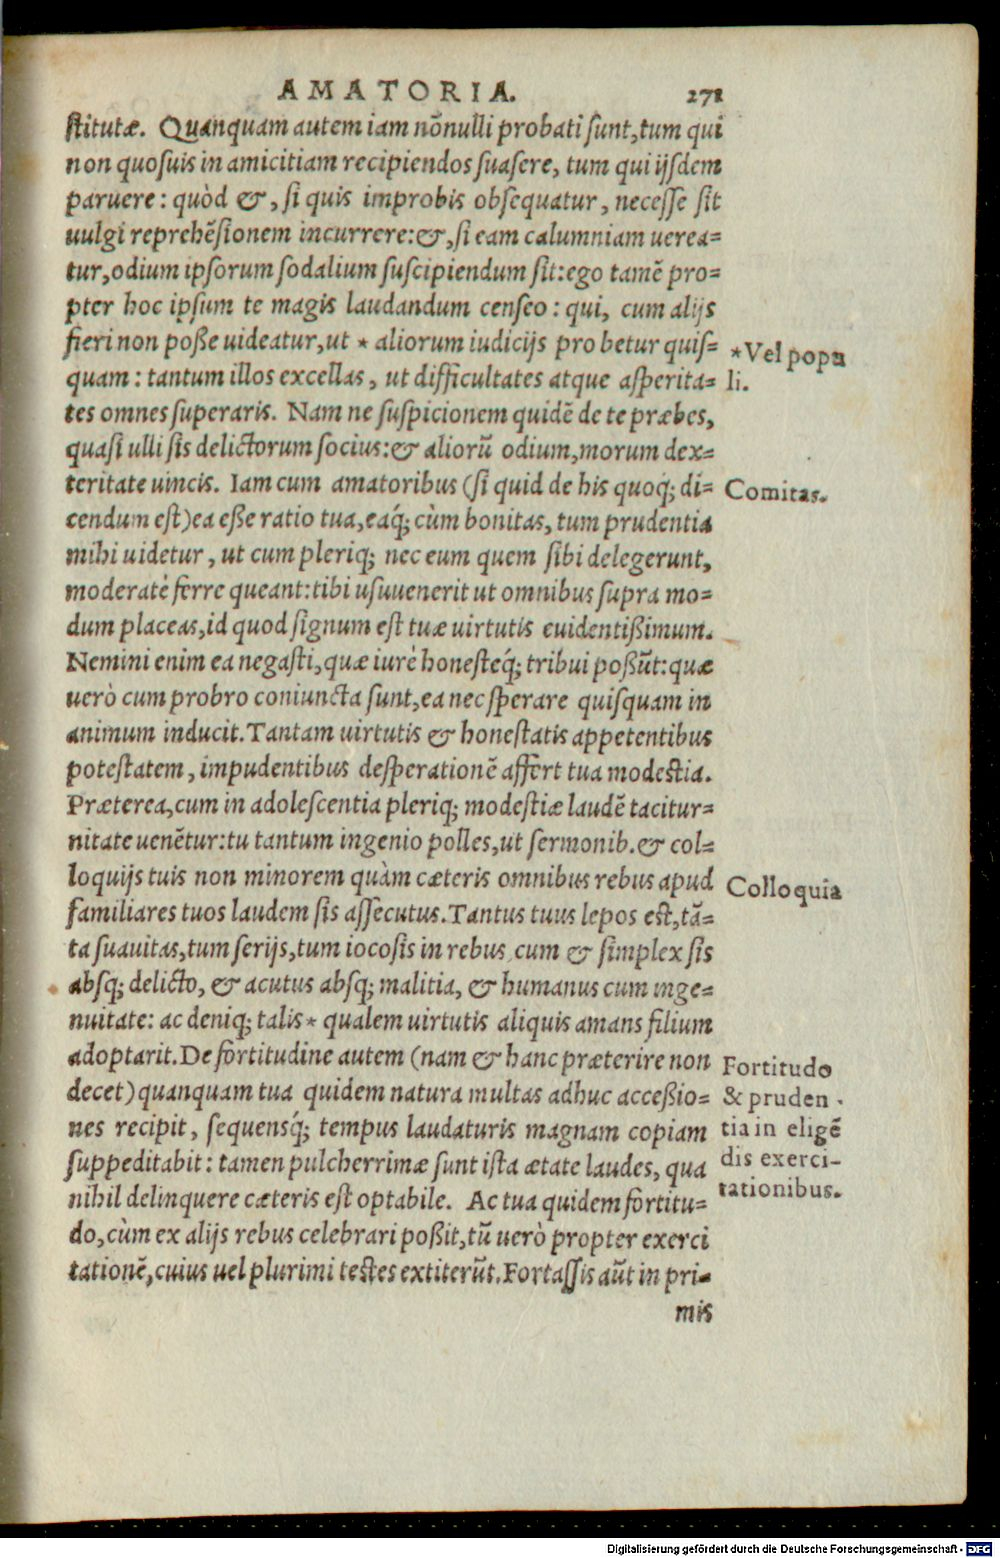 AMATORIA. 271
ſtitutæ. Quanquam autem iam nõnulli probati ſunt, tum qui
non quoſuis in amicitiam recipiendos ſuaſere, tum qui ijſdem
paruere: quòd &, ſi quis improbis obſequatur, neceſſe ſit
uulgi reprehẽſionem incurrere: &, ſi eam calumniam uerea=
tur, odium ipſorum ſodalium ſuſcipiendum ſit: ego tamẽ pro=
pter hoc ipſum te magis laudandum cenſeo: qui, cum alijs
fieri non poße uideatur, ut * aliorum iudicijs probetur quiſ=
*Vel popu
quam: tantum illos excellas, ut difficultates atque aſperita=
li.
tes omnes ſuperaris. Nam ne ſuſpicionem quidẽ de te præbes,
quaſi ulli ſis delictorum ſocius: & aliorũ odium, morum dex=
teritate uincis. Iam cum amatoribus (ſi quid de his quoq́; di=
Comitas.
cendum eſt) ea eße ratio tua, eaq́; cùm bonitas, tum prudentia
mihi uidetur, ut cum pleriq; nec eum quem ſibi delegerunt,
moderatè ferre queant: tibi uſuuenerit ut omnibus ſupra mo=
dum placeas, id quod ſignum eſt tuæ uirtutis euidentißimum.
Nemini enim ea negaſti, quæ iurè honeſteq́; tribui poßũt: quæ
uerò cum probro coniuncta ſunt, ea nec ſperare quiſquam in
animum inducit. Tantam uirtutis & honeſtatis appetentibus
poteſtatem, impudentibus deſperationẽ affert tua modeſtia.
Præterea, cum in adoleſcentia pleriq; modeſtiæ laudẽ tacitur=
nitate uenẽtur: tu tantum ingenio polles, ut ſermonib. & col=
loquijs tuis non minorem quàm cæteris omnibus rebus apud
Colloquia
familiares tuos laudem ſis aſſecutus. Tantus tuus lepos eſt, tã=
ta ſuauitas, tum ſerijs, tum iocoſis in rebus, cum & ſimplex ſis
abſq; delicto, & acutus abſq; malitia, & humanus cum inge=
nuitate: ac deniq; talis * qualem uirtutis aliquis amans filium
adoptarit. De fortitudine autem (nam & hanc præterire non
Fortitudo
decet) quanquam tua quidem natura multas adhuc acceßio=
& pruden-
nes recipit, ſequensq́; tempus laudaturis magnam copiam
tia in eligẽ
ſuppeditabit: tamen pulcherrimæ ſunt iſta ætate laudes, qua
dis exerci-
nihil delinquere cæteris eſt optabile. Ac tua quidem fortitu=
tationibus.
do, cùm ex alijs rebus celebrari poßit, tũ uerò propter exerci
tationẽ, cuius uel plurimi teſtes extiterũt. Fortaſſis aũt in pri-
mis
Digitalisierung gefördert durch die Deutsche Forschungsgemeinschaft - DFG